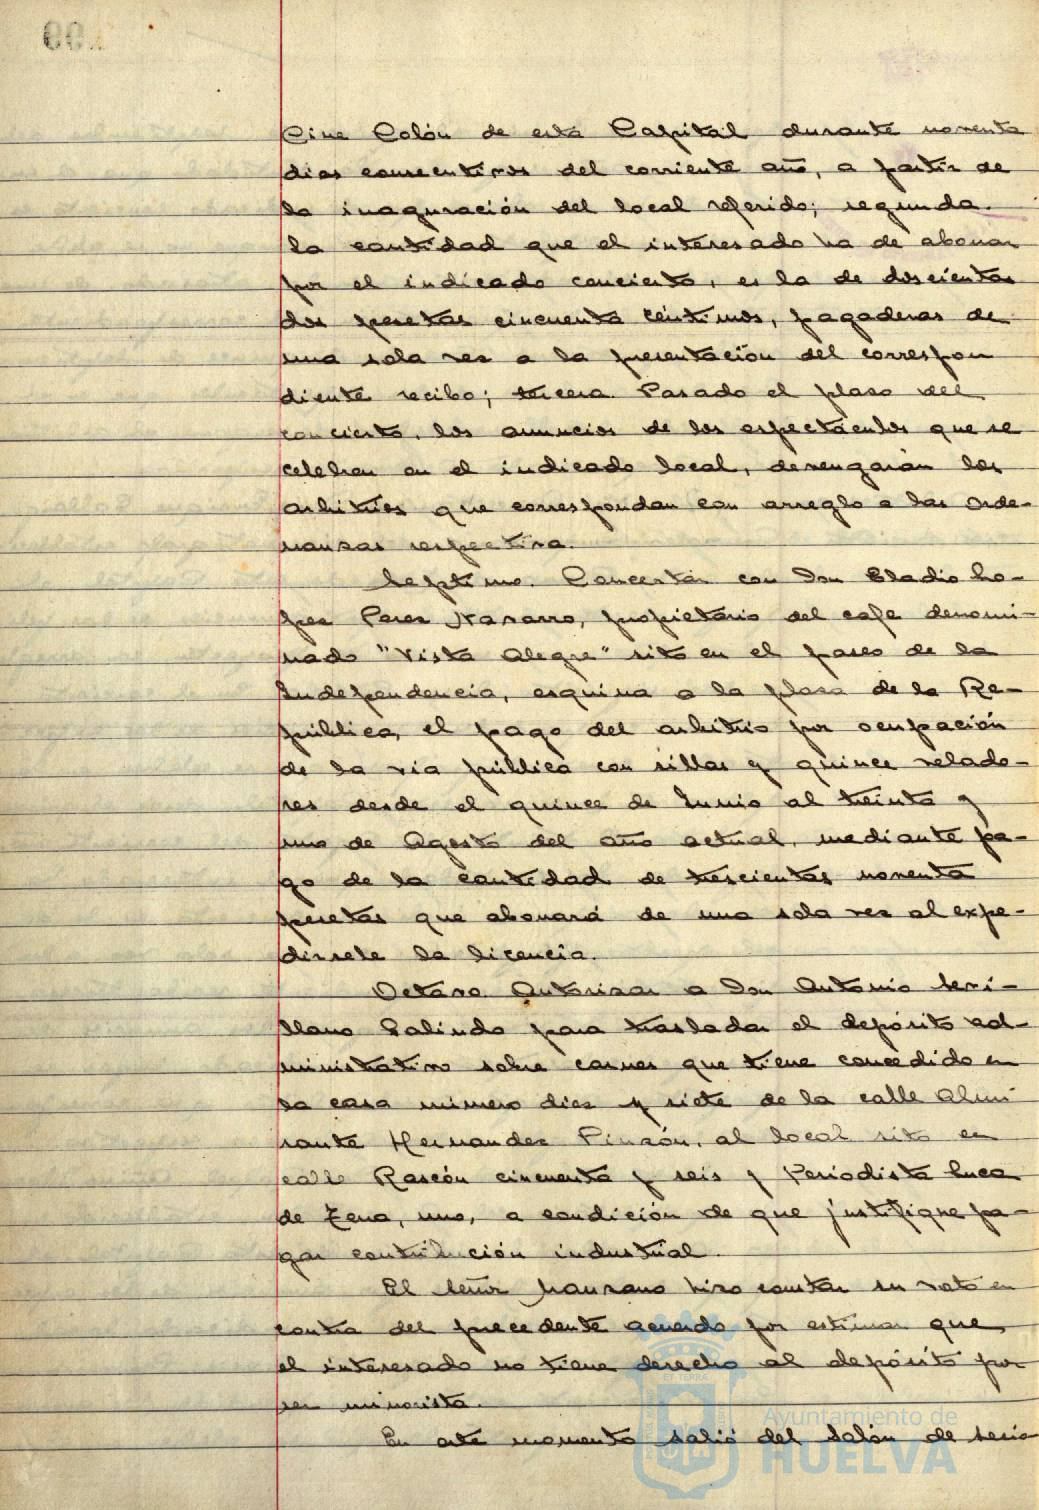 Cine Colón de esta Capital durante noventa
dias consecutivos del corriente año, a partir de
la inaguración del local referido; segunda.
la cantidad que el interesado ha de abonar
por el indicado concierto, es la de doscientas
dos pesetas cincuenta céntimos, pagaderas de
una sola vez a la presentación del correspon
diente recibo; tercera. Pasado el plazo del
concierto, los anuncios de los espectáculos que se
celebren en el indicado local, devengarán los
arbitrios que correspondan con arreglo a las orde-
nanzas respectiva.
Septimo. Concertar con Don Eladio Lo-
pez Perez Navarro, propietario del café denomi-
nado "Vista Alegre" sito en el paseo de la
Independencia, esquina a la plaza de la Re-
pública, el pago del arbitrio por ocupación
de la via pública con sillas y quince velado-
res desde el quince de Junio al treinta y
uno de Agosto del año actual, mediante pa-
go de la cantidad de trescientas noventa
pesetas que abonará de una sola vez al expe-
dirsele la licencia.
Octavo. Autorizar a Don Antonio Sevi-
llano Galindo para trasladar el depósito ad-
ministrativo sobre carnes que tiene concedido en
la casa número diez y siete de la calle Almi
rante Hernandez Pinzón, al local sito en
calle Rascón cincuenta y seis y Periodista Luca
de Tena, uno, a condición de que justifique pa-
gar contribución industrial.
El Señor Manzano hizo constar su voto en
contra del precedente acuerdo por estimar que
el interesado no tiene derecho al depósito por
ser minorista.
En este momento salió del Salón de Sesio
Ayuntamiento de
HUELVA